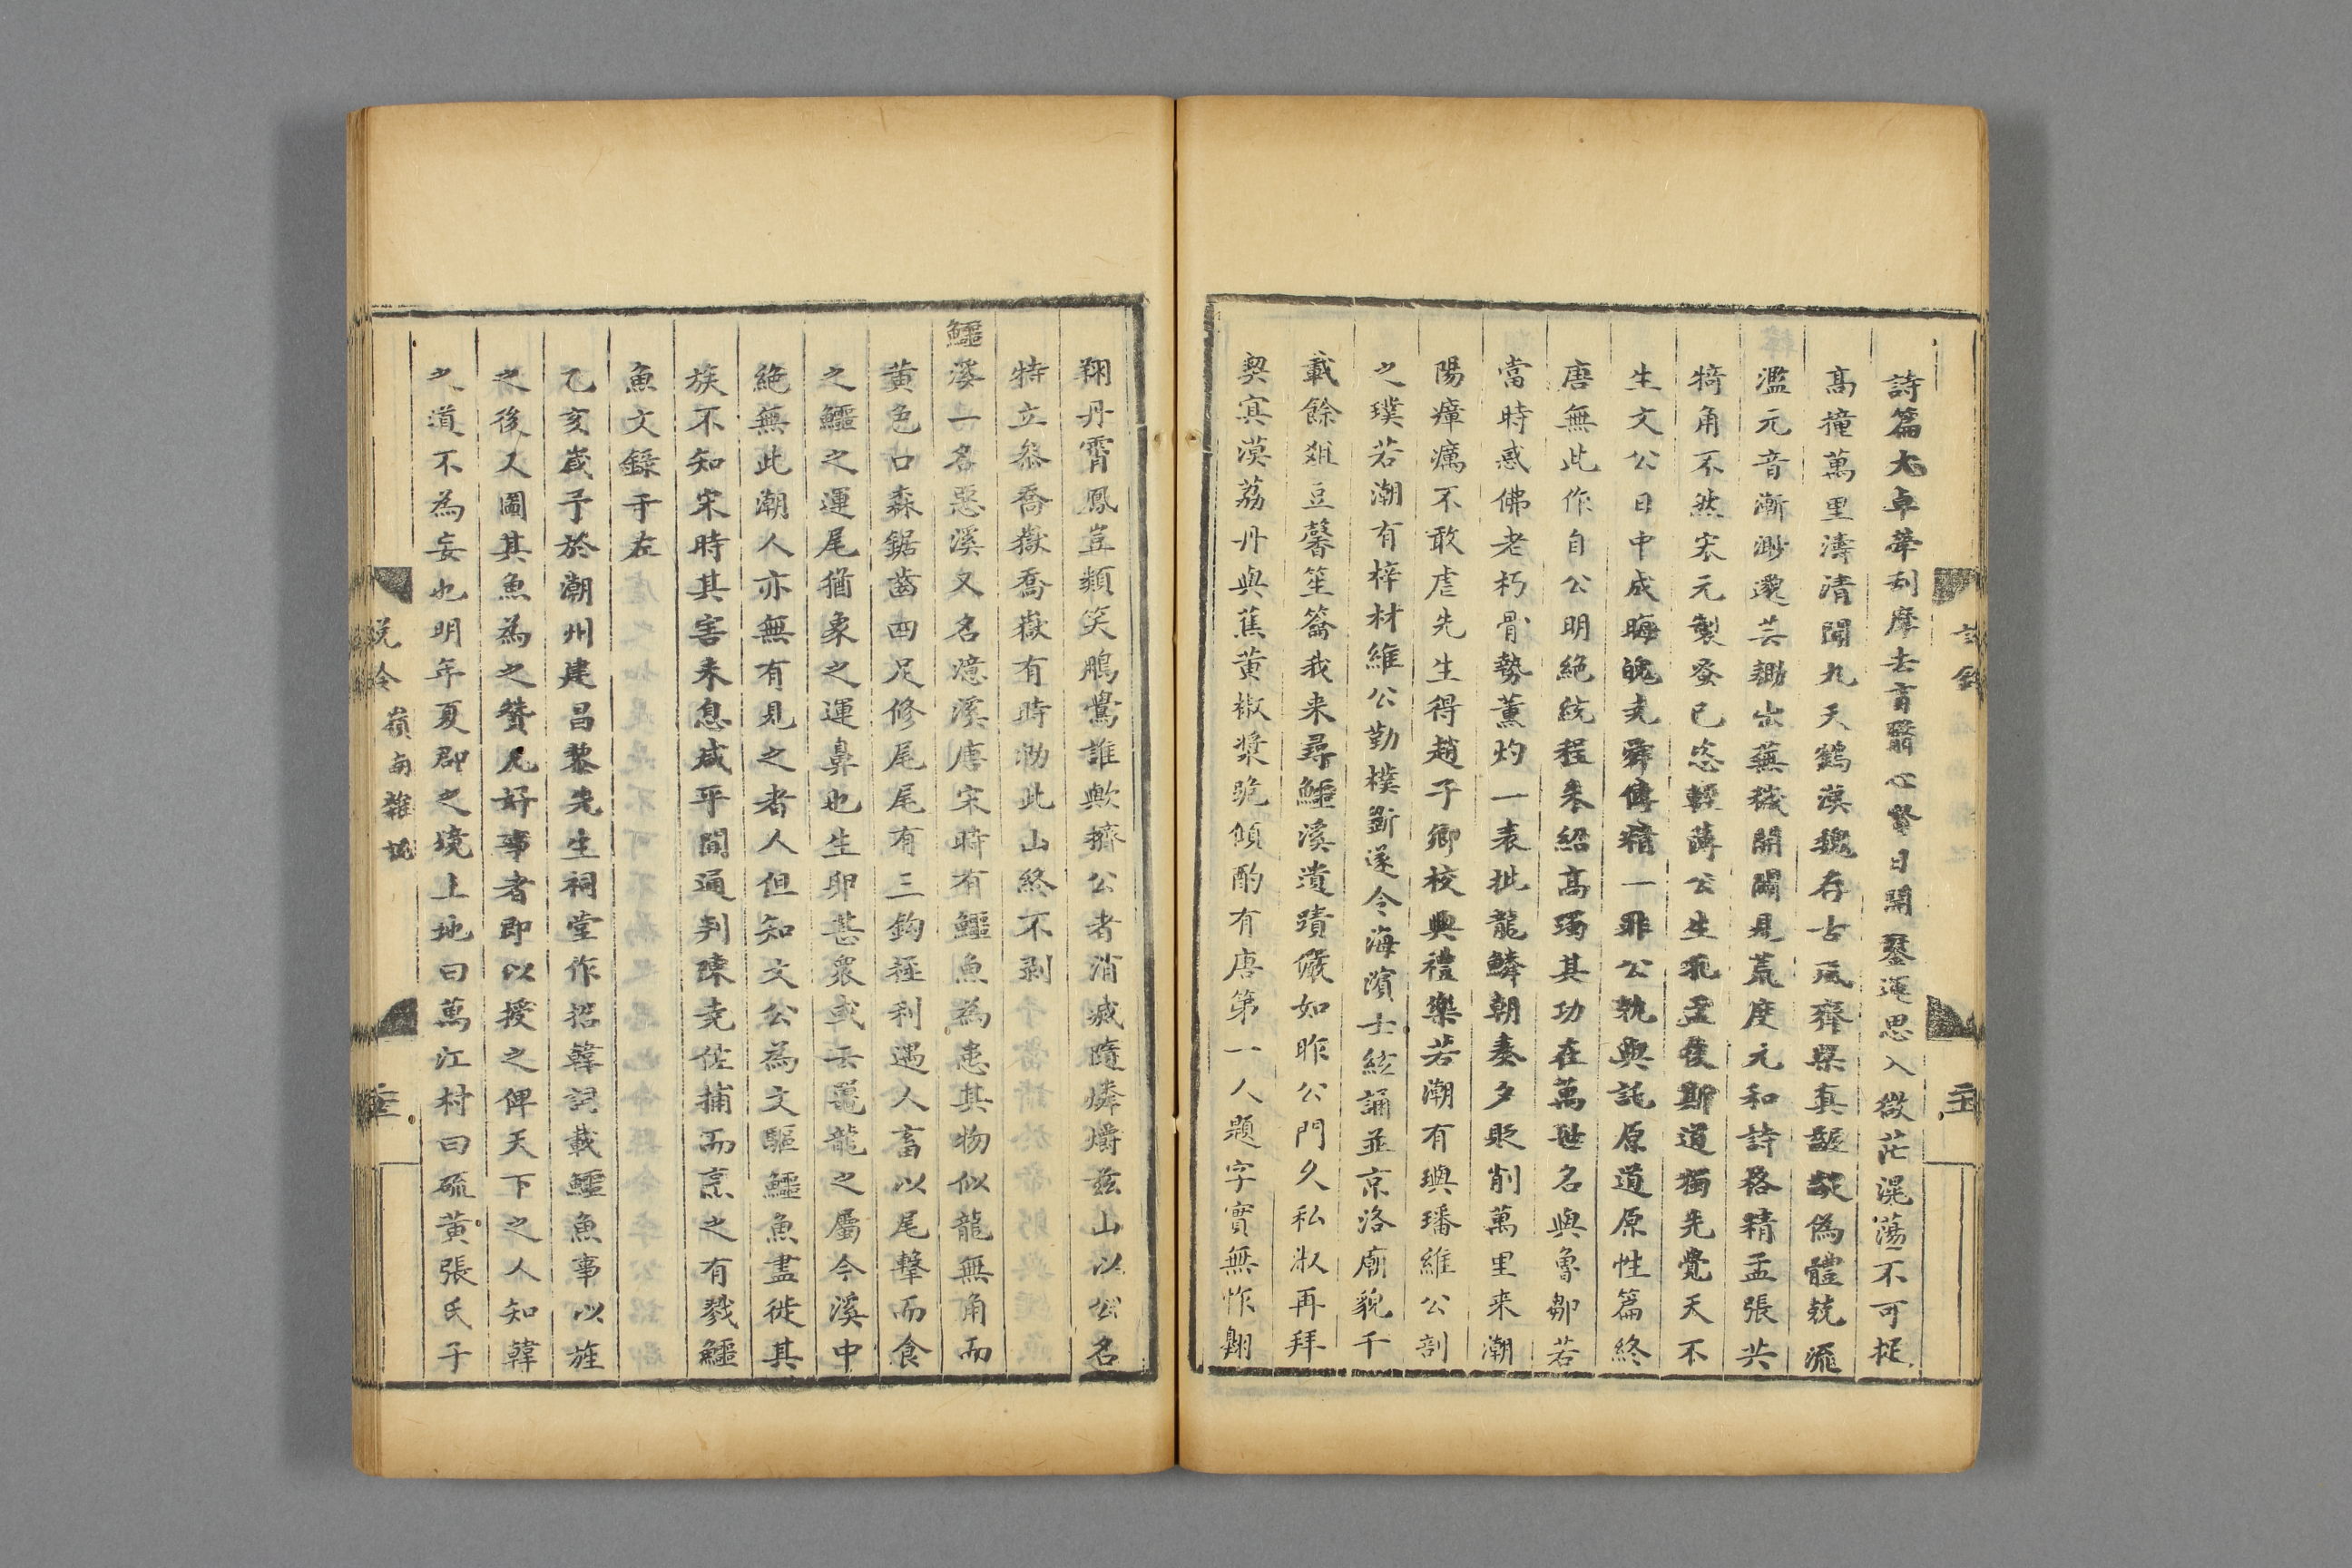 詩篇尤卓犖刮摩去盲翳心繁日開鑿運思入微茫滉蕩不可捉
高撞萬里濤清聞九天鶴漢魏存古風齊梁真齷齪偽體兢流
濫元音漸渺邈芸鋤出蕪穢開闢見荒度元和詩格精孟張共
犄角不然宋元製蚤已恣輕薄公生孔孟後斯道獨先覺天不
生文公日中成晦魄堯舜傳精一非公孰與託原道原性篇終
唐無此作自公明絕統程朱紹高躅其功在萬世名與魯鄒若
當時惑佛老朽骨勢薰灼一表批龍鱗朝奏夕貶削萬里来潮
陽瘴癘不敢虐先生得趙子鄉校興禮樂若潮有璵璠維公剖
之璞若潮有梓材維公勤樸斲遂令海濱士絃誦並京洛廟貌千
載餘爼豆馨笙籥我来尋鱷溪遺蹟儼如昨公門久私淑再拜
契寘漠荔丹與蕉黄椒漿跪傾酌有唐第一人題字實無怍翱
翔丹霄鳳豈類笑鵬鷽誰歟擠公者消滅隨燐爝兹山以公名
特立叅喬嶽喬嶽有時泐此山終不剥
鱷溪一名惡溪又名濦溪唐宋時有鱷魚為患其物似龍無角而
黄色口森鋸齒四足修尾尾有三鈎極利遇人畜以尾擊而食
之鱷之運尾猶象之運鼻也生卵甚衆或云黿龍之屬今溪中
絶無此潮人亦無有見之者人但知文公為文驅鱷魚盡徙其
族不知宋時其害未息咸平間通判陳堯佐捕而烹之有戮鱷
魚文録于左
乙亥歲予於潮州建昌黎先生祠堂作招韓詞載鱷魚事以旌
之後又圖其魚為之贊凡好事者即以授之俾天下之人知韓
之道不為妄也明年夏郡之境上地曰萬江村曰硫黄張氏子
說鈴 嶺南雜記